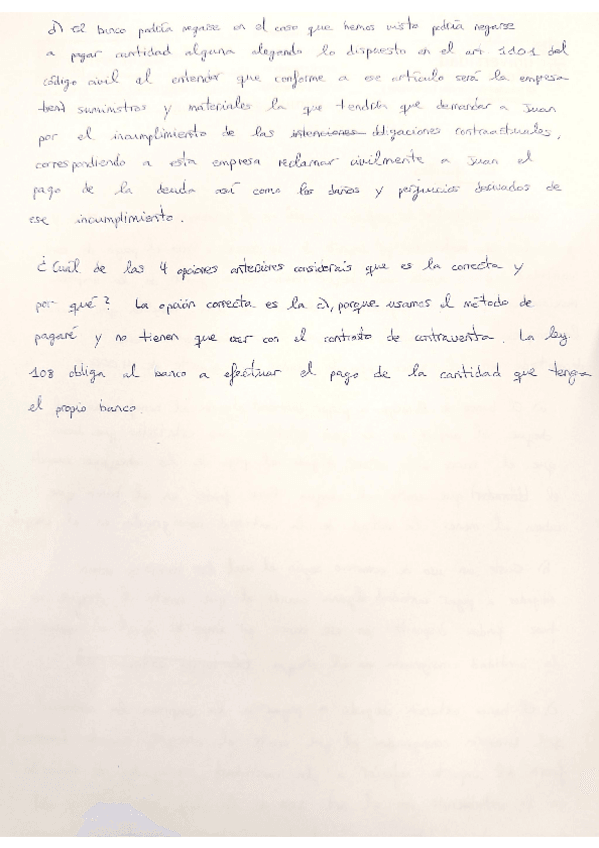 d) El banco podría negarse en el caso que hemos visto podría negarse
a pagar cantidad alguna alegando lo dispuesto en el art 1101 del
código civil al entender que conforme a ese artículo será la empresa
suministros y materiales la que tendría que demandar a Juan
por el incumplimiento de las intenciones obligaciones contractuales,
correspondiendo a esta empresa reclamar civilmente a Juan el
pago de la deuda así como los daños y perjuicios derivados de
ese incumplimiento.
¿Cuál de las 4 opciones anteriores consideráis que es la correcta y
por qué? La opción correcta es la , porque usamos el método de
pagaré y no tienen que ver con el contrato de contraventa. La ley
108 obliga al banco a efectuar el pago de la cantidad que tenga
el propio banco.